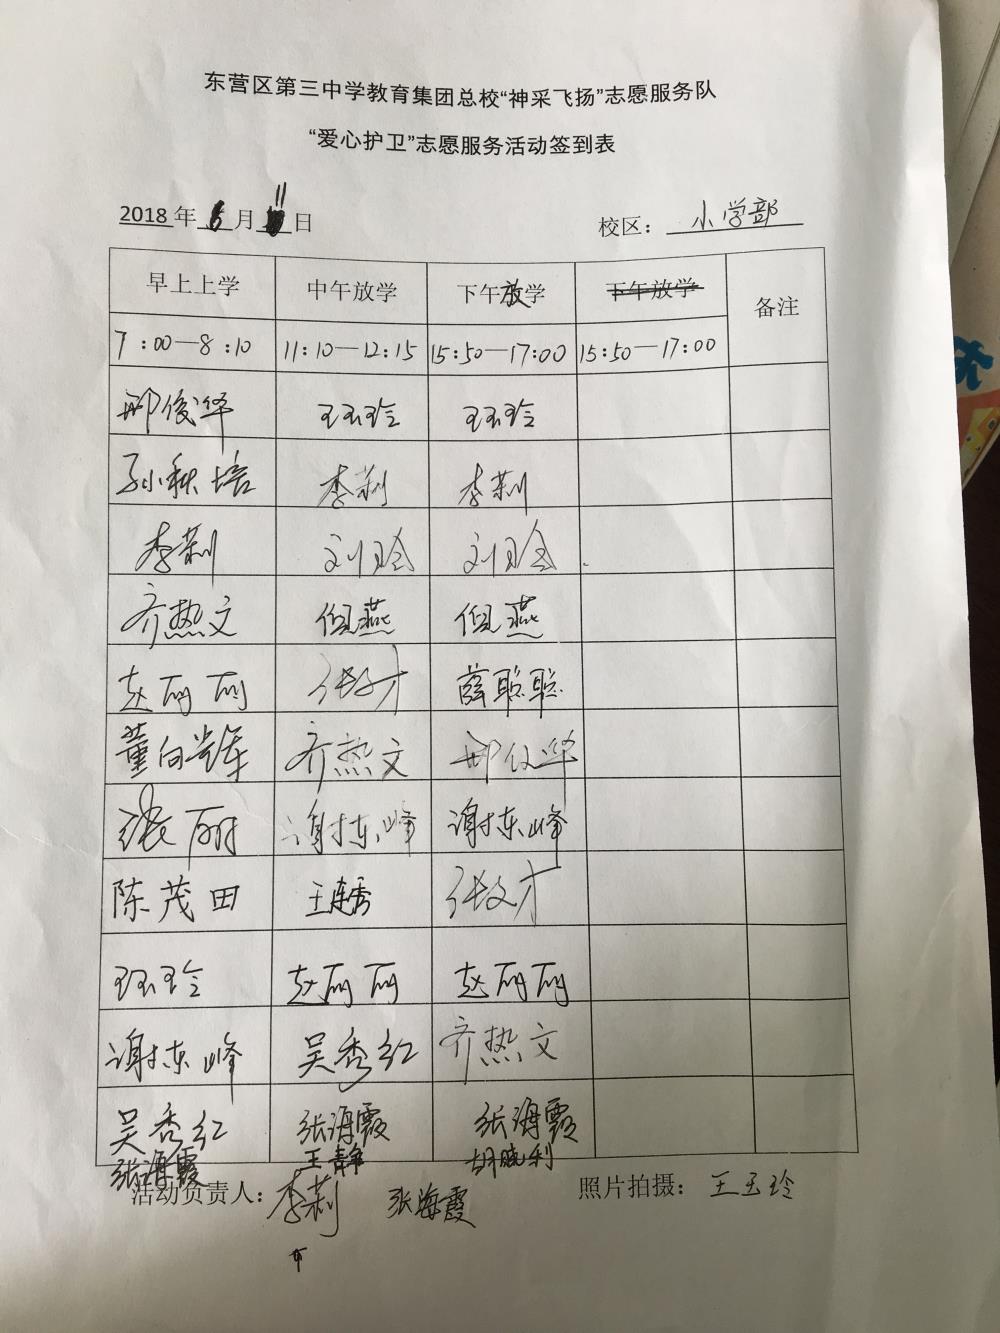 东营区第三中学教育集团总校“神采飞扬”志愿服务队
“爱心护卫”志愿服务活动签到表
2018 年 5 月 11 日 校区： 小学部
早上上学 中午放学 下午放学 下午放学 备注
7:00—8:10 11:10—12:15 15:50—17:00 15:50—17:00
邢俊华 王玉玲 王玉玲
孙秋培 李莉 李莉
李莉 刘玲 刘玲
齐热文 倪燕 倪燕
赵丽丽 张文才 薛聪聪
董向军 齐热文 邢俊华
张丽 谢拣峰 谢拣峰
陈茂田 王连秀 张文才
王玉玲 赵丽丽 赵丽丽
谢拣峰 吴秀红 齐热文
吴秀红 张海霞 张海霞
张海霞 王青 胡晓利
活动负责人： 李莉 张海霞 照片拍摄： 王玉玲